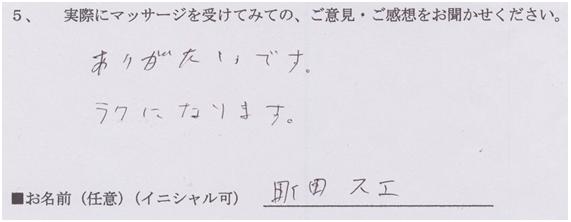 ５、　実際にマッサージを受けてみての、ご意見・ご感想をお聞かせください。
ありがたいです。
ラクになります。
■お名前（任意）（イニシャル可）　町田スエ